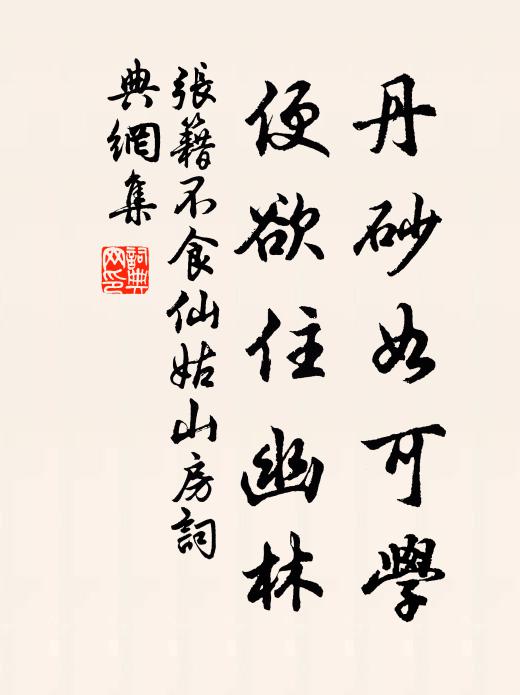 丹砂如可學
便欲住幽林
張籍不食仙姑山房詞
典網集
詞典
网印